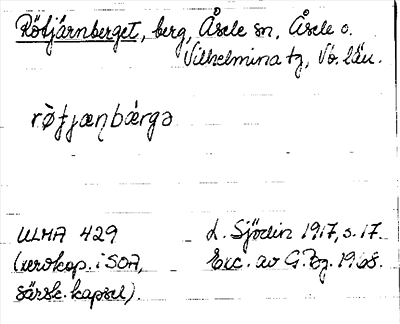 Rötjärnberget, berg, Åsele sn, Åsele o.
Vilhelmina tg, Vb. län.
ULMA 429
(xerokop. i SOA,
särsk. kapsel).
L. Sjödin 1917, s. 17.
Exc. av G. Bg. 1968.